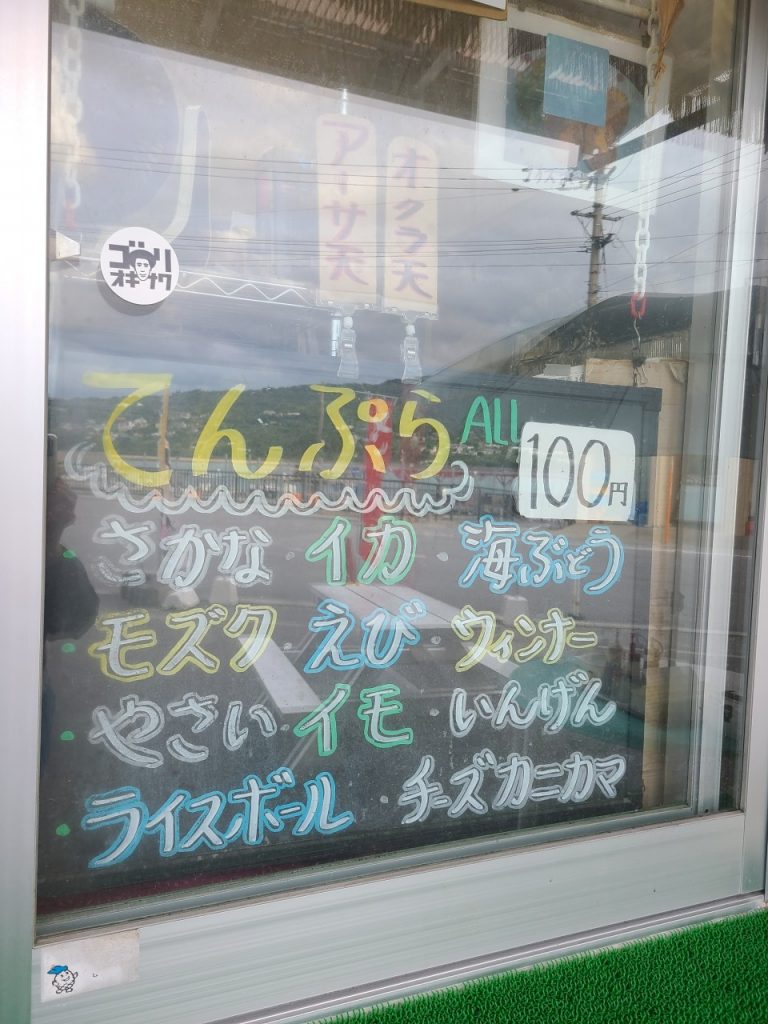 アーサ天
オクラ天
ゴリ
オキナワ
てんぷら ALL 100円
・さかな・イカ・海ぶどう
・モズク・えび・ウィンナー
・やさい・イモ・いんげん
・ライスボール・チーズカニカマ